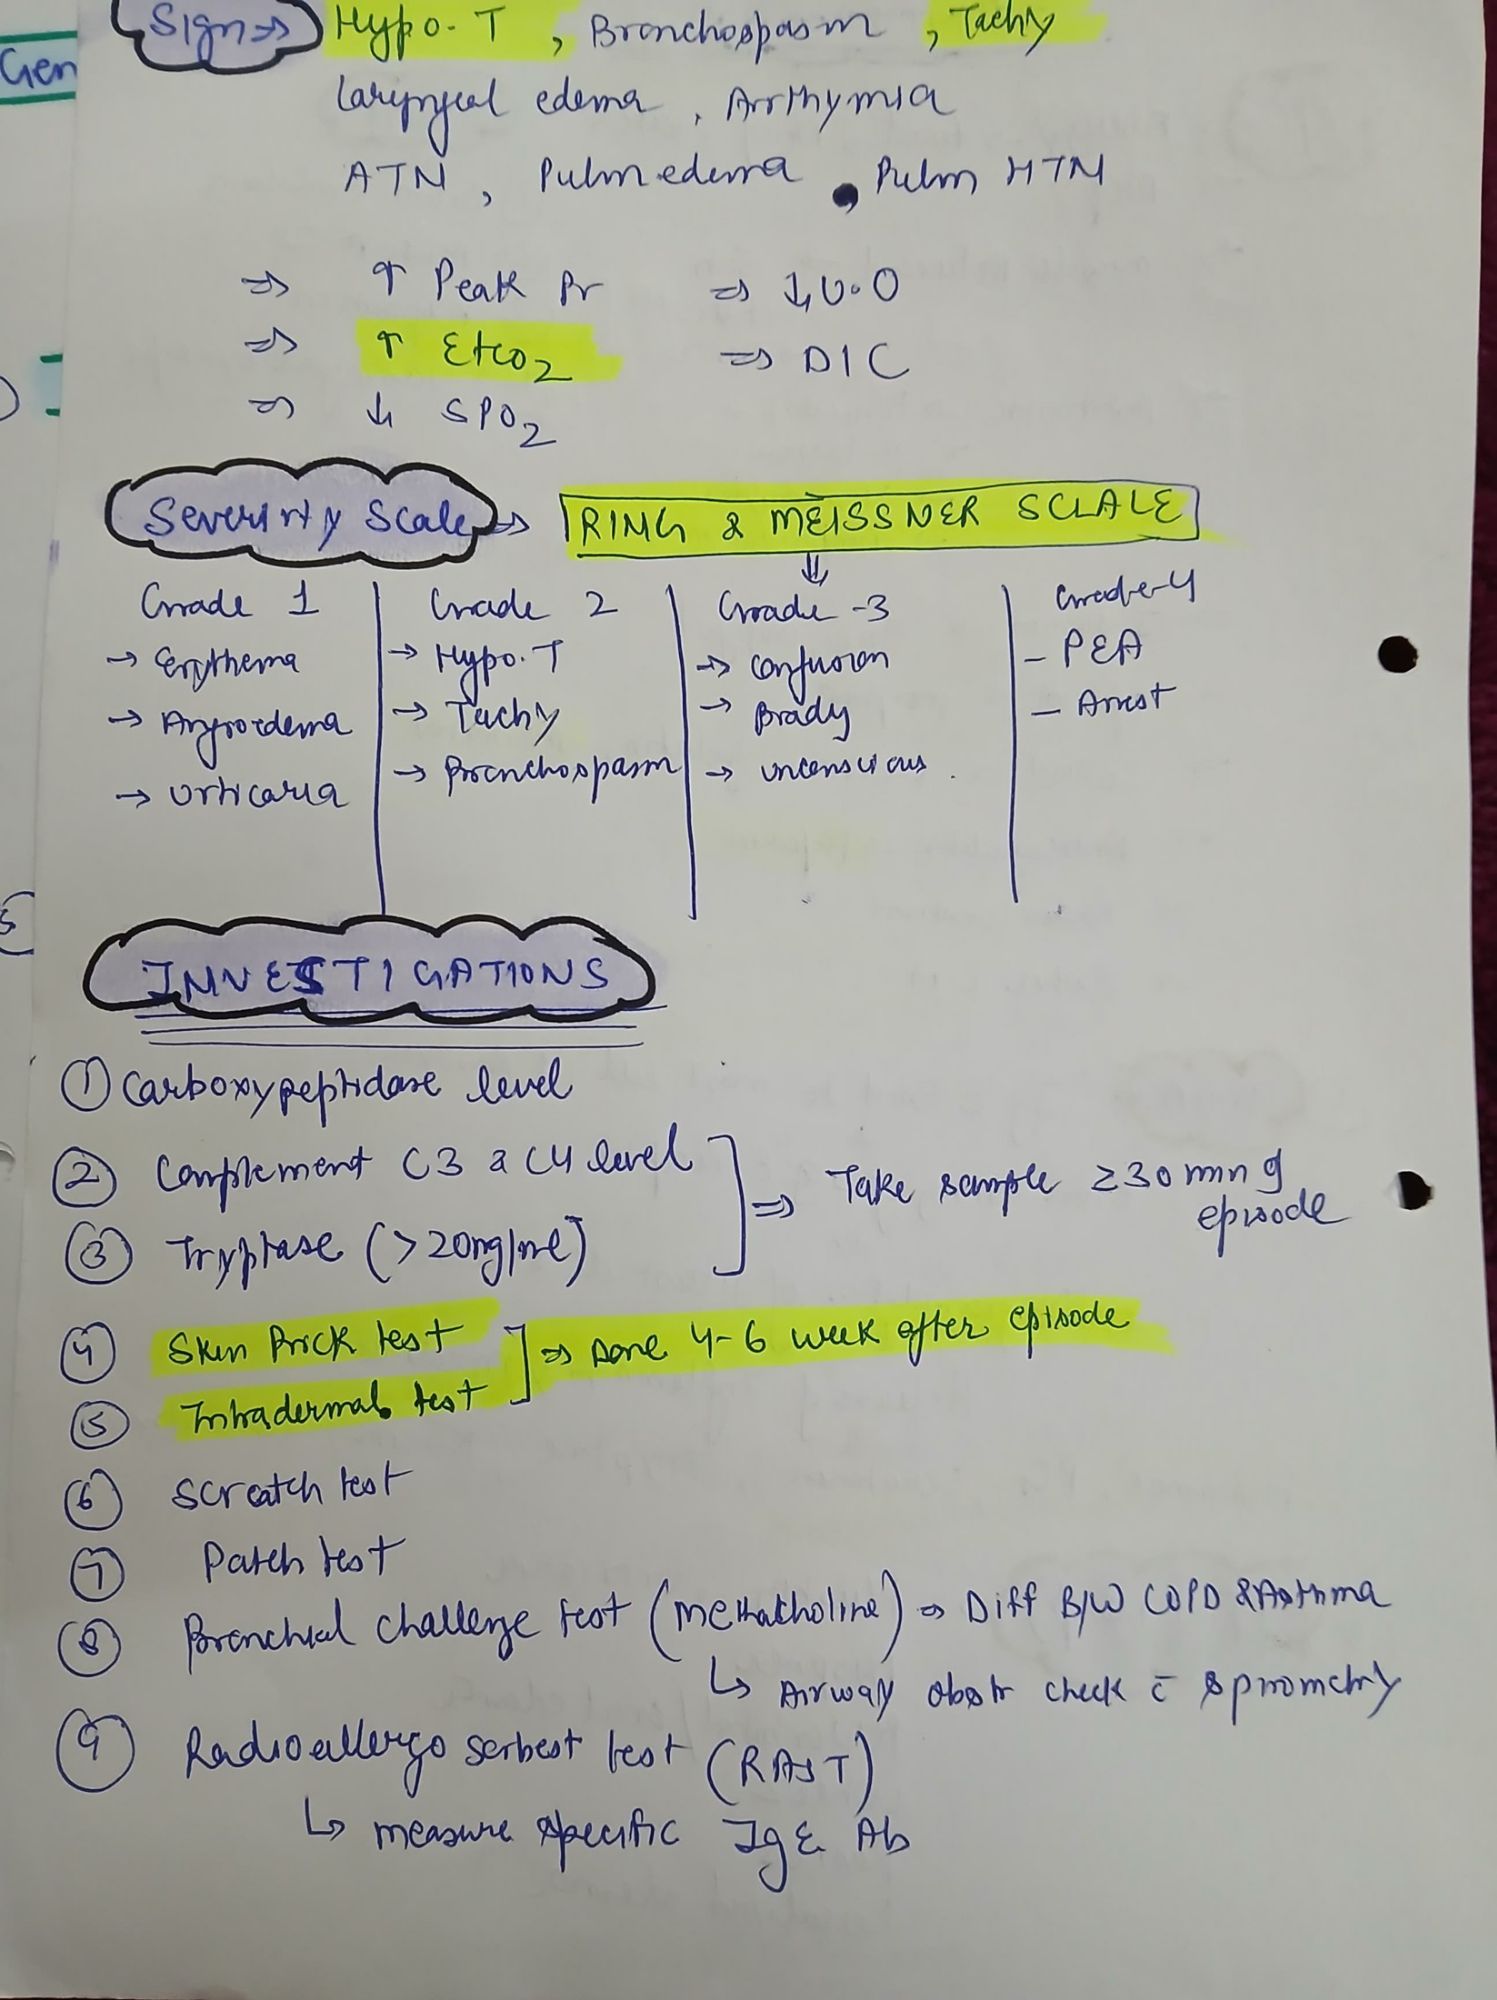 Gen
Sign ⇒ Hypo-T , Bronchospasm , Tachy
laryngeal edema , Arrthymia
ATN , Pulm edema , Pulm HTN
⇒ ↑ Peak Pr ⇒ ↓ U.O
⇒ ↑ Etco2 ⇒ DIC
⇒ ↓ SPO2
Severirty Scale ⇒ RING & MEISSNER SCLALE
Grade 1 Grade 2 Grade -3 Grade-4
→ Erythema → Hypo.T → confusion – PEA
→ Angioedema → Tachy → Brady – Arrest
→ urticaria → Bronchospasm → unconscious
INVESTIGATIONS
① Carboxypeptidase level
② Complement C3 & C4 level
③ Tryptase (>20ng/ml) ⇒ Take sample ≥30 min of episode
④ Skin Prick test
⑤ Intradermal test ⇒ Done 4-6 week after episode
⑥ Scratch test
⑦ Patch test
⑧ Bronchial challenge test (Methacholine) ⇒ Diff B/W COPD & Asthma
↳ Airway obstr check c̄ spirometry
⑨ Radioallergo sorbest test (RAST)
↳ measure specific IgE Ab